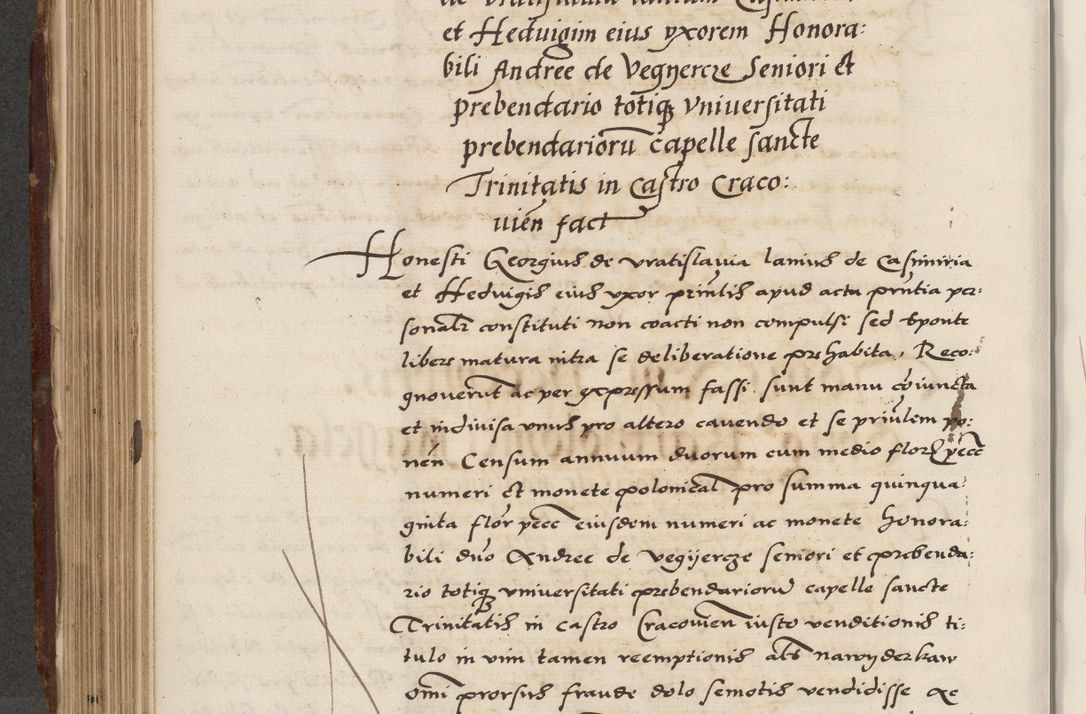 et Heduigim eius vxorem Honora:
bili Andree de Vegyercze Seniori et
prebendario totiq̃ Vniuersitati
prebendariorũ capelle sancte
Trinitatis in Castro Craco:
uień fact
Honesti Georgius de vratislauia lanius de Casimiria
et Heduigis eius vxor priñlis apud acta prñtia per:
sonalr constituti non coacti non compulsi sed sponte
libere matura intra se deliberatione prehabita, Reco:
gnouerut ac per expressum fassi sunt manu cõiuncta
et indiuisa unus pro altero cauendo et se priũlem po:
neń Censum annuum duorum cum medio flor pecc
numeri et monete polonical pro summa quinqua:
ginta flor pecc eiusdem numeri ac monete honora:
bili dño Andree de vegyercze seniori et prebenda:
rio totiq̃ vniuersitati prebendariorũ capelle sancte
Trinitatis in castro Cracouien iusto venditionis ti:
tulo in vim tamen reemptionis als nawyderkaw
omi prorsus fraude dolo semotis vendidisse ac